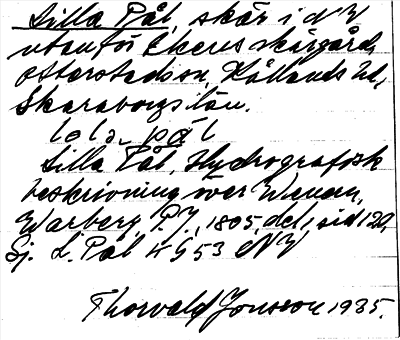 Lilla Pål, skär i NV
utanför Ekens skärgård,
Otterstadson, Kållands hd,
Skaraborgs län.
lɵla pål
Lilla Pål, Hydrografisk
beskrivning över Wenern,
Warberg, P.J., 1805, del 1, sid 120,
Sj. L. Pål K G 53 NV
Thorvald Jonsson 1935.